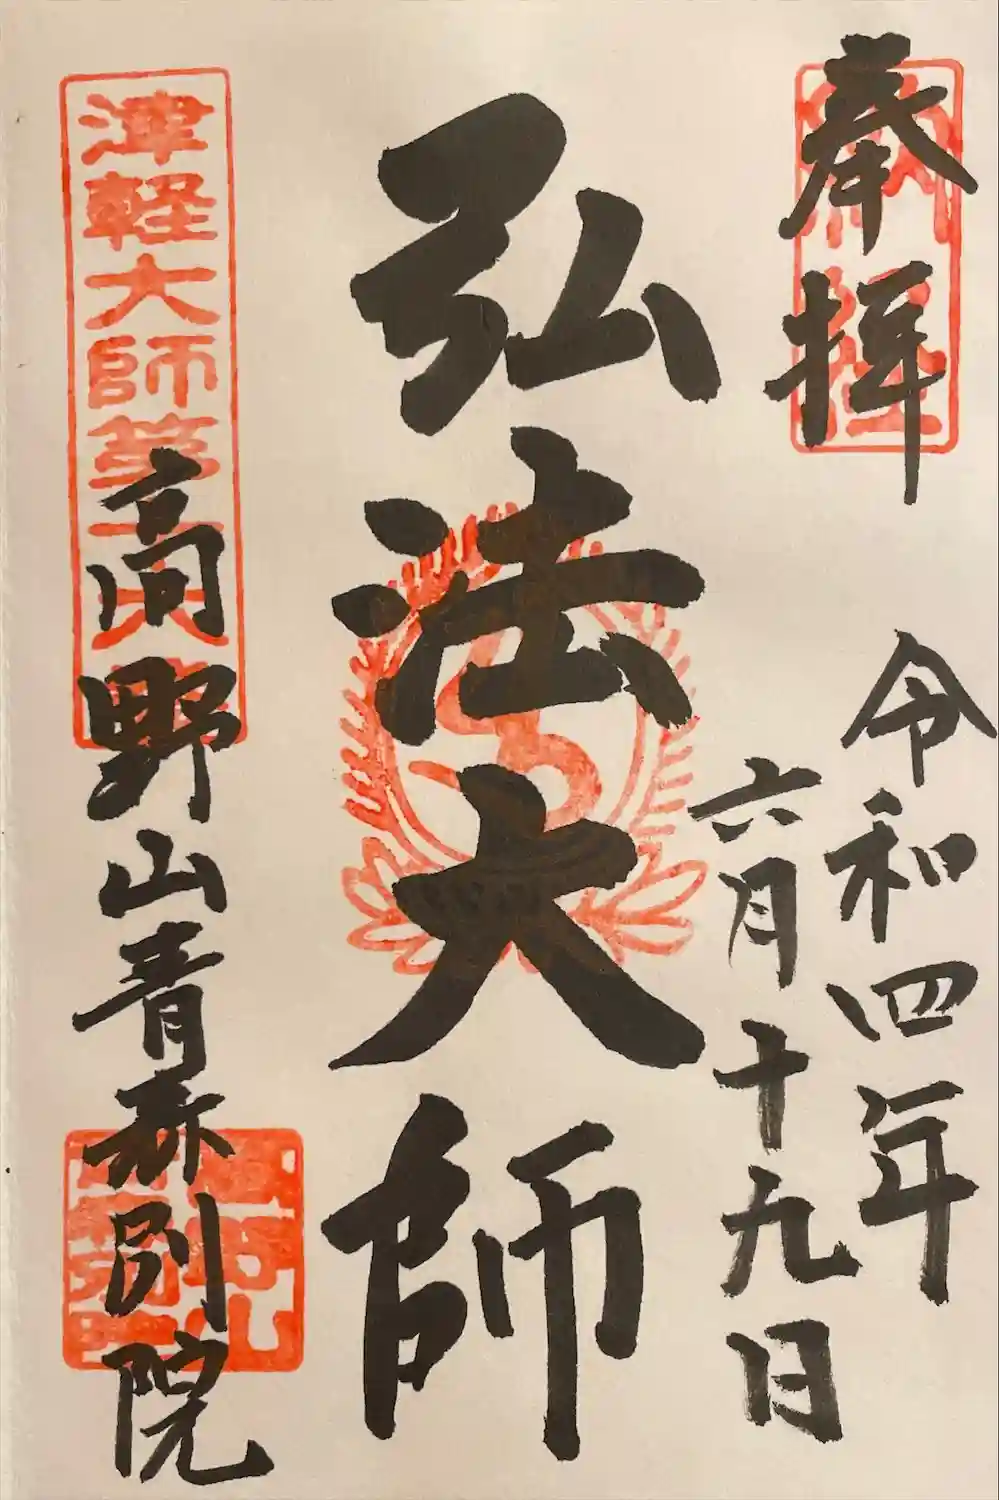 奉拝
令和四年
六月十九日
弘法大師
津軽大師第
高野山青森別院